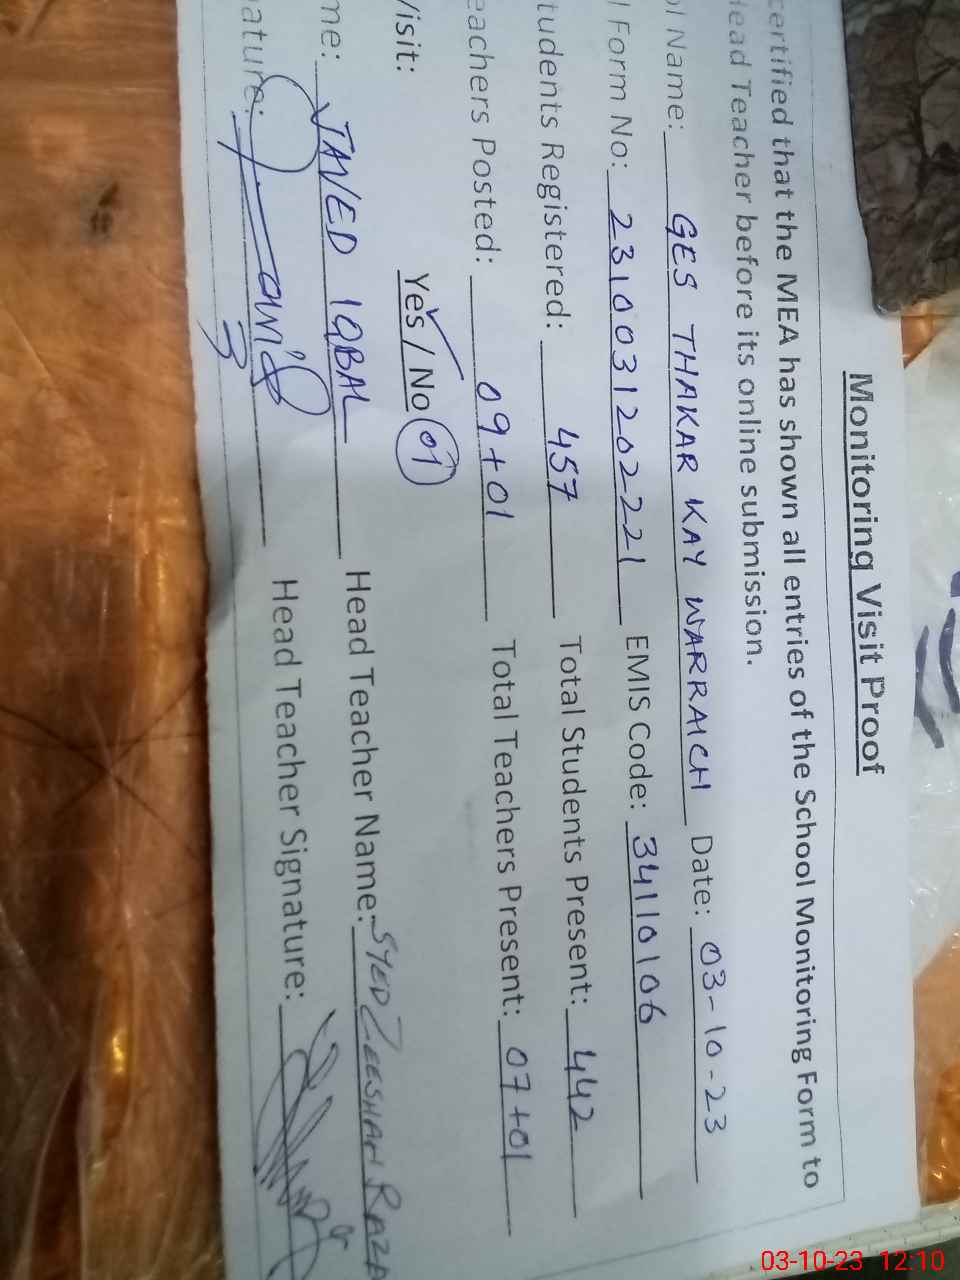 Monitoring Visit Proof
certified that the MEA has shown all entries of the School Monitoring Form to
Head Teacher before its online submission.
ol Name: GES THAKAR KAY WARRAICH Date: 03-10-23
l Form No: 2310031202221 EMIS Code: 34110106
tudents Registered: 457 Total Students Present: 442
eachers Posted: 09+01 Total Teachers Present: 07+01
Visit: Yes / No 01
me: JAVED IQBAL Head Teacher Name: SYED ZEESHAN RAZA
ature: Head Teacher Signature:
03-10-23 12:10